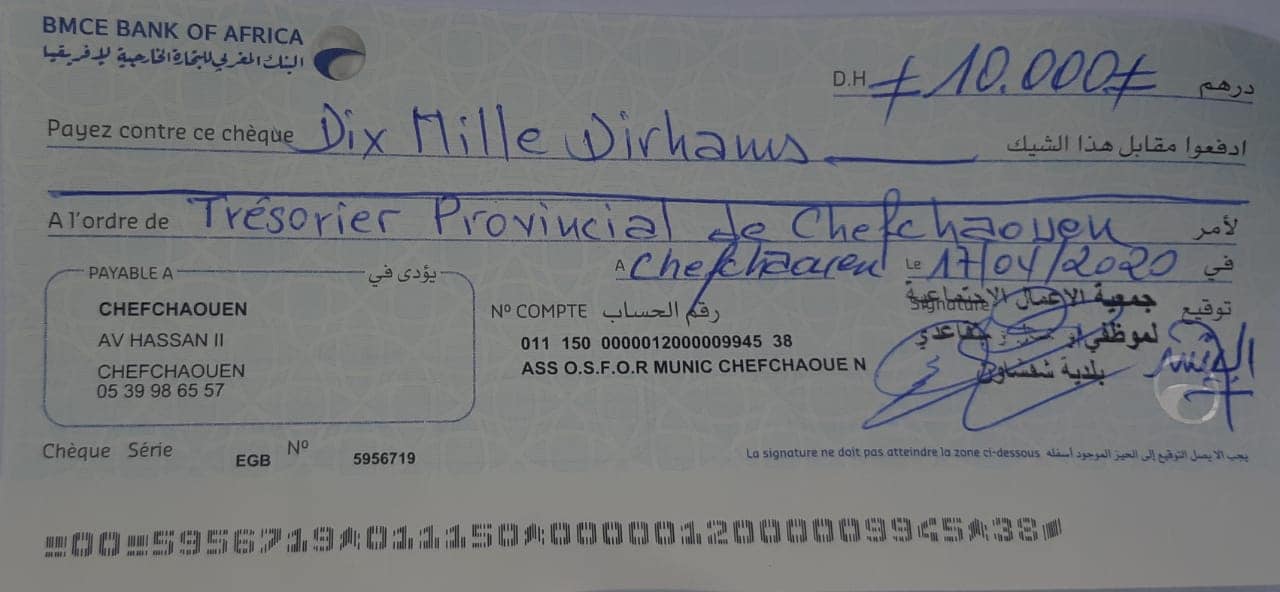 BMCE BANK OF AFRICA
البنك المغربي للتجارة الخارجية لإفريقيا
D.H ≠ 10.000 ≠ درهم
Payez contre ce chèque Dix Mille Dirhams ادفعوا مقابل هذا الشيك
A l'ordre de Trésorier Provincial de Chefchaouen لأمر
A Chefchaouen Le 17/04/2020 في
PAYABLE A يؤدى في
CHEFCHAOUEN
AV HASSAN II
CHEFCHAOUEN
05 39 98 65 57
Nº COMPTE رقم الحساب
011 150 0000012000009945 38
ASS O.S.F.O.R MUNIC CHEFCHAOUE N
Signature توقيع
جمعية الاعمال الاجتماعية
لموظفي
بلدية شفشاون
Chèque Série EGB Nº 5956719
La signature ne doit pas atteindre la zone ci-dessous يجب الا يصل التوقيع إلى الحيز الموجود أسفله
00 5956719 011150 0000012000009945 38